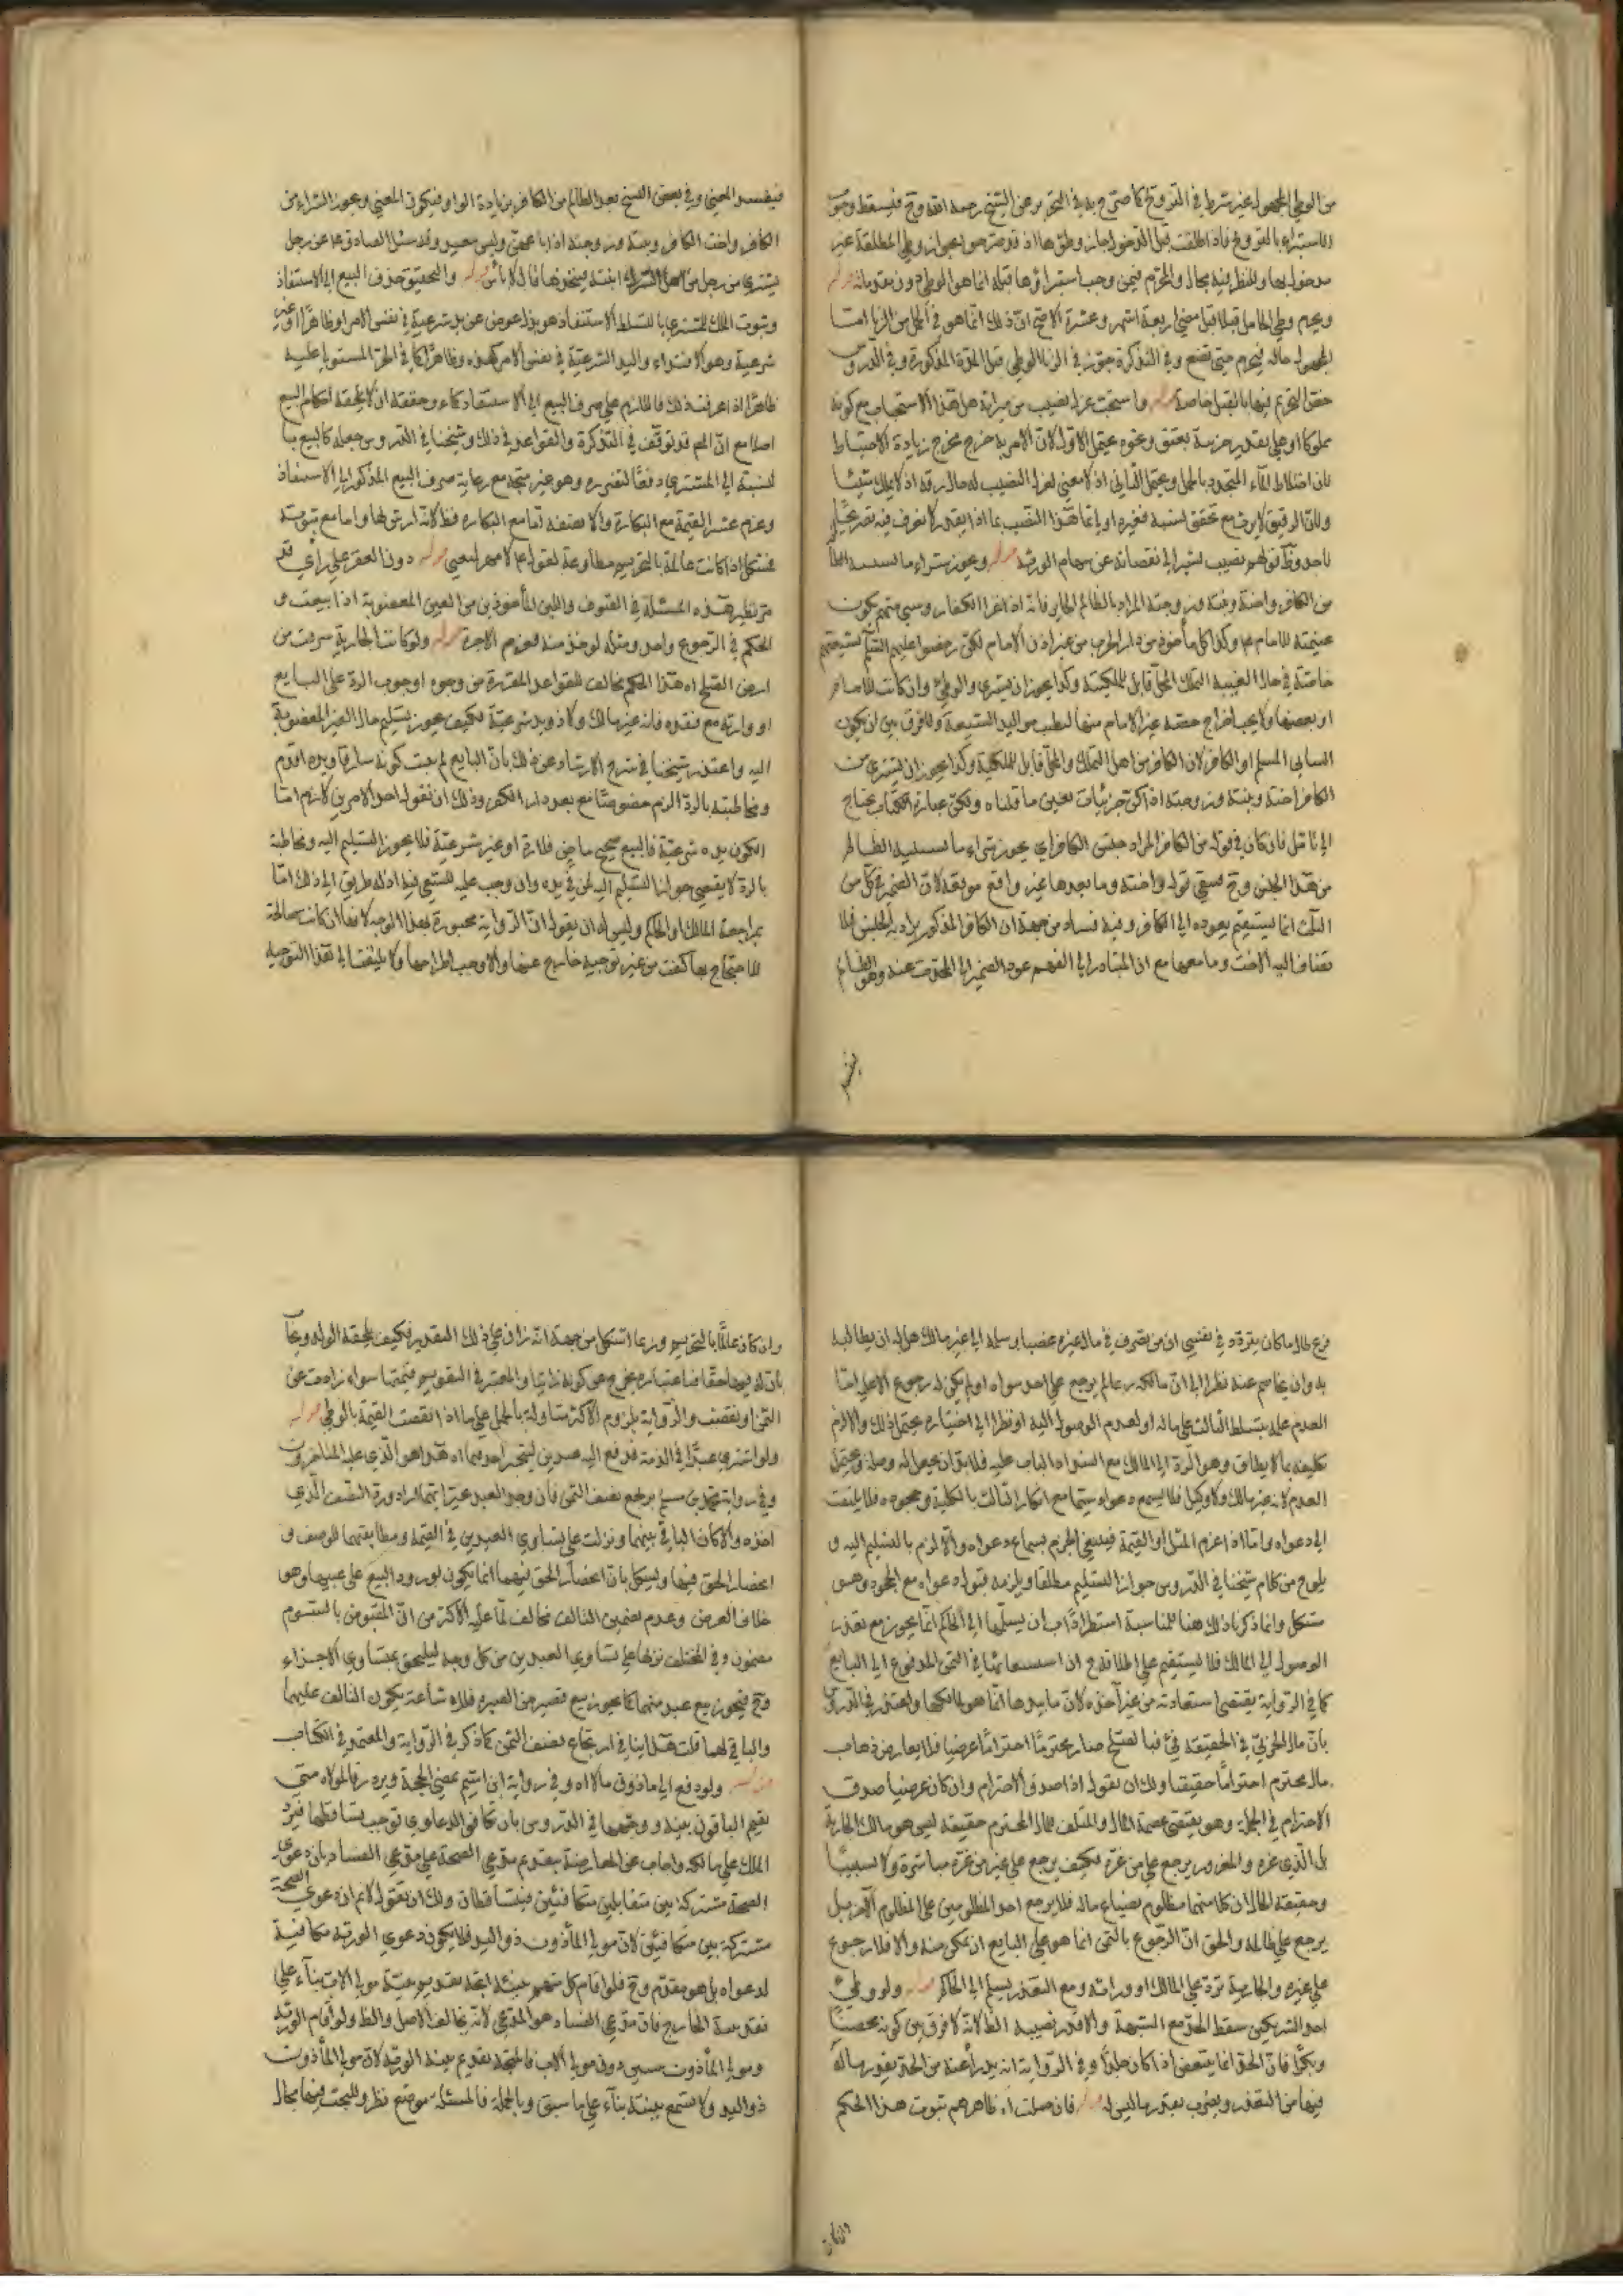 من الوطي المجهول غير شرط في التزوج كما صرح به في التحرير عن الشيخ رحمه الله وح فيسقط وجوب
الاستبراء بالتزوج فاذا طلقت قبل الدخول جاز وطؤها اذ قد صرحوا بجواز وطي المطلقة غير
مدخول بها وللنظر فيه مجال والمحرم فيمن وجب استبراؤها قبله انما هو الوطي دون مقدماته قوله
ويحرم وطي الحامل قبلا قبل مضي اربعة اشهر وعشرة الاصح ان ذلك انما هو في الحمل من الزنا امـا
المجهول حاله فيحرم حتى تضع وفي التذكرة جوز في الزنا الوطي قبل المدة المذكورة وفي الدروس
خص التحريم فيها بالقبل خاصة قوله واستحب عزل نصيب من ميراثه هل هذا الاستحباب مع كونه
مملوكا او على تقدير حريته بعتق ونحوه يحتمل الاول لان الامر به خرج مخرج زيادة الاحتياط
بان اختلاط الماء المتجدد بالحمل ويحتمل الثاني اذ لا معنى لعزل النصيب له حال رقه اذ لا يملك شيئا
ولان الرقيق لا يرث مع تحقق نسبه فغيره اولى اما هذا النصيب بماذا يقدر لا نعرف فيه تصريحا
باحد وظ قولهم نصيب يشير الى نقصانه عن سهام الورثة قوله ويجوز شراء ما يسبيه الظالم
من الكافر واخته وبنته وزوجته المراد بالظالم الجاير فانه اذا غزا الكفار وسبي منهم يكون
غنيمته للامام ع وكذا كل مأخوذ من دار الحرب من غير اذن الامام لكن رخصوا عليهم السلم لشيعتهم
خاصة في حال الغيبة التملك لمحل قابل للملكية وكذا يجوز ان يشترى والوطئ وان كانت للامام
او بعضها ولا يجب اخراج حصة غير الامام منها لطيب مواليد الشيعة ولا فرق بين ان يكون
السابي المسلم او الكافر لان الكافر من اهل التملك والمحل قابل للملكية وكذا يجوز ان يشتري من
الكافر اخته وبنته وزوجته اذ كل جزئيات تعين ما قلناه ولكن عبارة الكتاب يحتاج
الى تامل فان كان في قوله من الكافر المراد جنس الكافر اي يجوز شراء ما يسبيه الظالم
من هذا الجنس وح فيبقى قوله واخته وما بعدها غير واقع موقعه لان الضمير في كل من
الثلث انما يستقيم بعوده الى الكافر وفيه فساد من جهة ان الكافر المذكور يراد به الجنس فلا
تضاف اليه الاخت وما معها مع ان المتبادر الى الفهم عود الضمير الى المحدث عنه وهو الظالم
فيفسد
فيفسد المعنى وفي بعض النسخ بعد الظالم من الكافر بزيادة الواو فيكون المعنى ويجوز الشراء من
الكافر واخت الكافر وبنته وزوجته اذا باعهن وليس بمعيب وقد سئل الصادق ع عن رجل
يشتري من رجل من اهل الشرك ابنته فيتخذها قال لا بأس قوله والتحقيق صرف البيع الى الاستنقاذ
وثبوت الملك للمشتري بالتسلط الاستنقاذ هو بذل عوض عن يد شرعية في نفس الامر او ظاهرا او غير
شرعية وهو الافتداء واليد الشرعية في نفس الامر كهذه وظاهرا كما في الحر المستولى عليه
ظاهرا اذا عرفت ذلك فاللازم على صرف البيع الى الاستنقاذ كما ذكره وحققه ان لا يلحقه احكام البيع
اصلا مع ان المص قد توقف في التذكرة والقواعد في ذلك وشيخنا في الدروس جعله كالبيع بـا
لنسبة الى المشتري دفعا لتضرره وهو غير متجه مع رعاية صرف البيع المذكور الى الاستنقاذ
وغرم عشر القيمة مع البكارة والا نصفه اما مع البكارة فظ لانه ارش لها واما مع ثيوبته
فمشكل اذا كانت عالمة بالتحريم مطاوعة لقوله ع لا مهر لبغي قوله دون العقر على رأي قد
مر نظير هذه المسئلة في الصوف واللبن المأخوذين من العين المغصوبة اذا بيعت و
الحكم في الرجوع واحد ومثله لو اخذ منه قهرا الاجرة قوله ولو كانت الجارية سرقت من
ارض الصلح اه هذا الحكم مخالف للقواعد المقررة من وجوه اوجوب الردة على البـايع
او وارثه مع فقده فانه غير مالك ولا ذو يد شرعية فكيف يجوز تسليم مال الغير المغصوبة
اليه واعتذر شيخنا في شرح الارشاد عن ذلك بان البايع لم يثبت كونه سارقا ويده اقدم
ومخاطبته بالرد الزم خصوصا مع بعد دار الكفر ولك ان تقول احد الامرين لازم امـا
الكون يده شرعية فالبيع صحيح ماض فلا رد او غير شرعية فلا يجوز التسليم اليه ومخاطبته
بالرد لا يقتضي جواز التسليم اليه لمن في يده وان وجب عليه السعي فيه اذ له طريق الى ذلك امـا
بمراجعة المالك او الحاكم وليس له ان يقول ان الرواية مجبورة بهذا الوجه لانها ان كانت صالحة
للاحتجاج بها كفت من غير توجيه خارج عنها والا وجب اطراحها ولا يلتفت الى هذا التوجيه
فرع طال ما كان يتردد في نفسي ان من تصرف في مال غيره غصبا وسلمه الى غير مالك هل له ان يطالبه
به وان يخاصم عنه نظرا الى ان مالكه عالم يرجع على احد سواه او لم يكن له رجوع الاعلى امـا
العدم عليه بتسلط الثالث على ماله او لعدم الوصول اليه او نظرا الى اختياره يحتمل ذلك والا لزم
تكليفه بما لا يطاق وهو الرد الى المالك مع انسداد الباب عليه فلا بد وان يحصل له وصلة ويحتمل
العدم لانه غير مالك ولا وكيل فلا يسمع دعواه سيما مع انكار الثالث بالكلية وجحوده فلا يلتفت
الى دعواه واما اذا غرم المثل او القيمة فينبغي الجزم بسماع دعواه والالزام بالتسليم اليه و
يلوح من كلام شيخنا في الدروس جواز التسليم مطلقا ويلزمه قبول دعواه مع الجحود وهـو
مشكل وانما ذكرنا ذلك هنا للمناسبة استطرادا ب ان تسليمها الى الحاكم انما يجوز مع تعذر
الوصول الى المالك فلا يستقيم على اطلاقه ج ان استسعائها في الثمن المدفوع الى البايع
كما في الرواية يقتضي استعادته من غير آخذه لان ما بيدها انما هو لمالكها واعتذر في الدروس
بان مال الحربي في الحقيقة فيء فبالصلح صار محترما احتراما عرضيا فلا يعارض ذهاب
مال محترم احتراما حقيقيا ولك ان تقول اذا صدق الاحترام وان كان عرضيا صدق
الاحترام في الجملة وهو يقتضي عصمة المال والمتلف لمال المحترم حقيقة ليس هو مالك الجارية
بل الذي غره والمغرور يرجع على من غره فكيف يرجع على غير من غره مباشرة ولا تسبيبا
وحقيقة الحال ان كلا منهما مظلوم بضياع ماله فلا يرجع احد المظلومين على المظلوم الآخر بل
يرجع على ظالمه والحق ان الرجوع بالثمن انما هو على البايع ان تمكن منه والا فلا رجوع
على غيره والجارية ترد على المالك او وراثه ومع التعذر يسلم الى الحاكم قوله ولو وطئ
احد الشريكين سقط الحد مع الشبهة والا قدر نصيبه الظ انه لا فرق بين كونه محصنا
وبكرا فان الحد انما يتبعض اذا كان جلدا وفي الرواية انه يدرأ عنه من الحد بقدر ماله
فيها من النقد ويضرب بقدر ما ليس له قوله فان حملت اه ظاهرهم ثبوت هذا الحكم
وان كان
وان كان عالما بالتحريم وربما استشكل من جهة انه زان على ذلك التقدير فكيف يلحقه الولد ويجاب
بان له فيها حقا فباعتباره يخرج عن كونه زانيا والمعتبر في التقويم قيمتها سواء زادت عن
الثمن او نقصت والرواية بلزوم الاكثر متأولة بالحمل على ما اذا نقصت القيمة بالوطي قوله
ولو اشترى عبدا في الذمة فدفع اليه عبدين ليتخير احدهما اه هذا هو الذي عليه المتاخرون
وفي رواية محمد بن مسلم يرتجع نصف الثمن فان وجد العبد تخير ايتهما اراد ورد النصف الذي
اخذه والا كان الباقي بينهما ونزلت على تساوي العبدين في القيمة ومطابقتهما للوصف و
انحصار الحق فيهما ويشكل بان انحصار الحق فيهما انما يكون لو ورد البيع على عينهما وهو
خلاف الفرض وعدم تضمين التالف مخالف لما عليه الاكثر من ان المقبوض بالسـوم
مضمون وفي المختلف نزلها على تساوي العبدين من كل وجه ليلحق بمتساوي الاجزاء
وح فيجوز بيع عبد منهما كما يجوز بيع قفيز من الصبرة فلاشاعته يكون التالف عليهما
والباقي لهما قلت هذا ينافي ارتجاع نصف الثمن كما ذكر في الرواية والمعتمد في الكتاب
قوله ولو دفع الى ماذون مالا اه وفي رواية ابن اشيم بمضي الحجة ويرد رقا لمولاه حتى
يقيم الباقون بينة ووجهها في الدروس بان تكافؤ الدعاوي توجب تساقطها فيرد
الملك على مالكه واجاب عن المعارضة بتقديم مدعي الصحة على مدعي الفساد بان دعوى
الصحة مشتركة بين متقابلين متكافئين فيتساقطان ولك ان تقول لا نم ان دعوى الصحة
مشتركة بين متكافئين لان مولى المأذون ذو اليد فلا يكون دعوى الورثة مكافئة
لدعواه بل هو مقدم وح فلو اقام كل منهم بينة اتجه تقديم بينة مولى الاب بناء على
تقديم بينة الخارج فان مدعي الفساد هو المدعي لانه يخالف الاصل والظ ولو اقام الورثة
ومولى المأذون بينتين دون مولى الاب فالمتجه تقديم بينة الورثة لان مولى المأذون
ذو اليد ولا تسمع بينته بناء على ما سبق وبالجملة فالمسئلة موضع نظر وللبحث فيها مجال